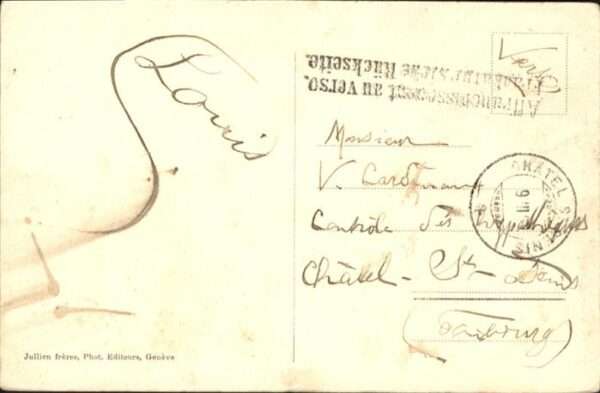 Louis
Affranchissement au verso.
Frankatur siehe Rückseite.
Verso
Monsieur
V. Cardinaux
Contrôle des hypothèques
Châtel - St - Denis
(Fribourg)
CHATEL ST DENIS
Jullien frères, Phot. Editeurs, Genève